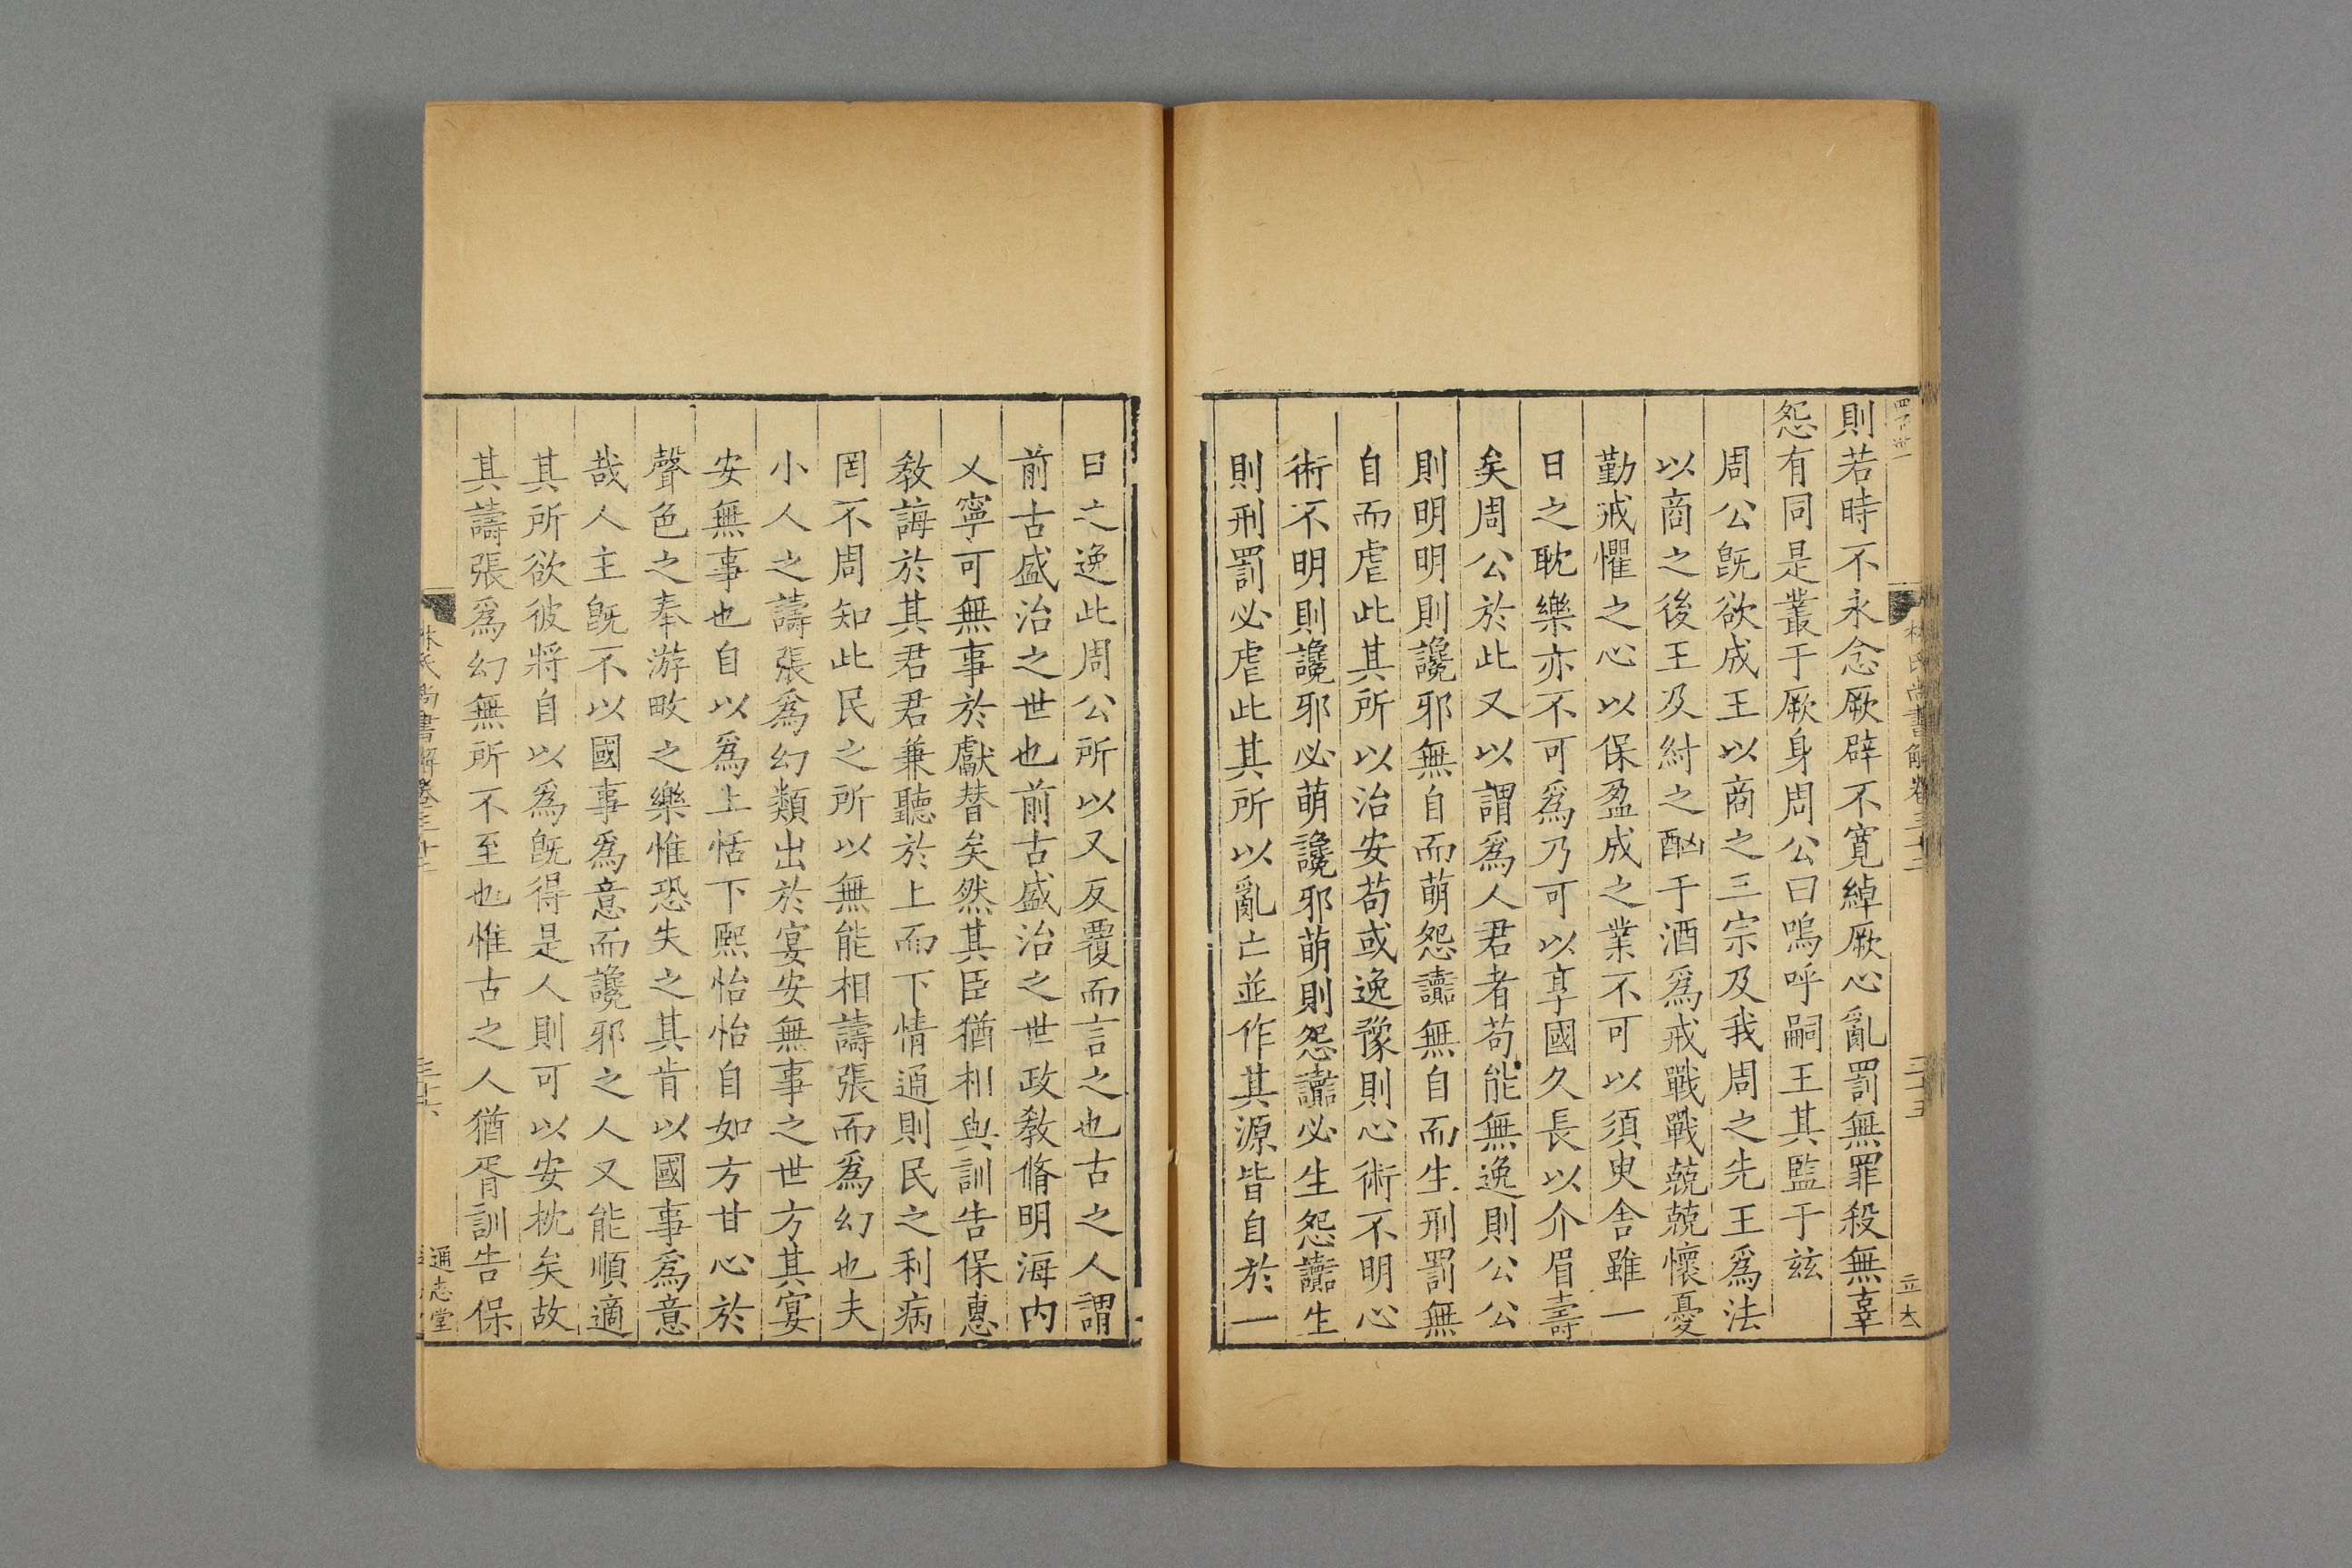 則若時不永念厥辟不寛綽厥心亂罰無罪殺無辜
怨有同是叢于厥身周公曰嗚呼嗣王其監于兹
周公旣欲成王以商之三宗及我周之先王爲法
以商之後王及紂之酗于酒爲戒戰戰兢兢懷憂
勤戒懼之心以保盈成之業不可以須臾舍雖一
日之耽樂亦不可爲乃可以享國久長以介眉壽
矣周公於此又以謂爲人君者苟能無逸則公公
則明明則讒邪無自而萌怨讟無自而生刑罰無
自而虐此其所以治安苟或逸豫則心術不明心
術不明則讒邪必萌讒邪萌則怨讟必生怨讟生
則刑罰必虐此其所以亂亡並作其源皆自於一
日之逸此周公所以又反覆而言之也古之人謂
前古盛治之世也前古盛治之世政敎脩明海内
乂寧可無事於獻替矣然其臣猶相與訓告保惠
敎誨於其君君兼聽於上而下情通則民之利病
罔不周知此民之所以無能相譸張而爲幻也夫
小人之譸張爲幻類出於宴安無事之世方其宴
安無事也自以爲上恬下熙怡怡自如方甘心於
聲色之奉游畋之樂惟恐失之其肯以國事爲意
哉人主旣不以國事爲意而讒邪之人又能順適
其所欲彼將自以爲旣得是人則可以安枕矣故
其譸張爲幻無所不至也惟古之人猶胥訓告保
林氏尚書解卷三十二
三十六
通志堂